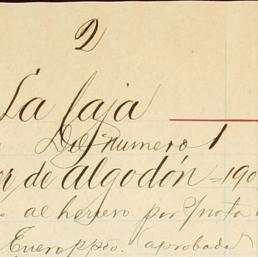 2
La faja
Del numero 1
de algodón = 190
al herrero por
Enero ppdo. (aprobada